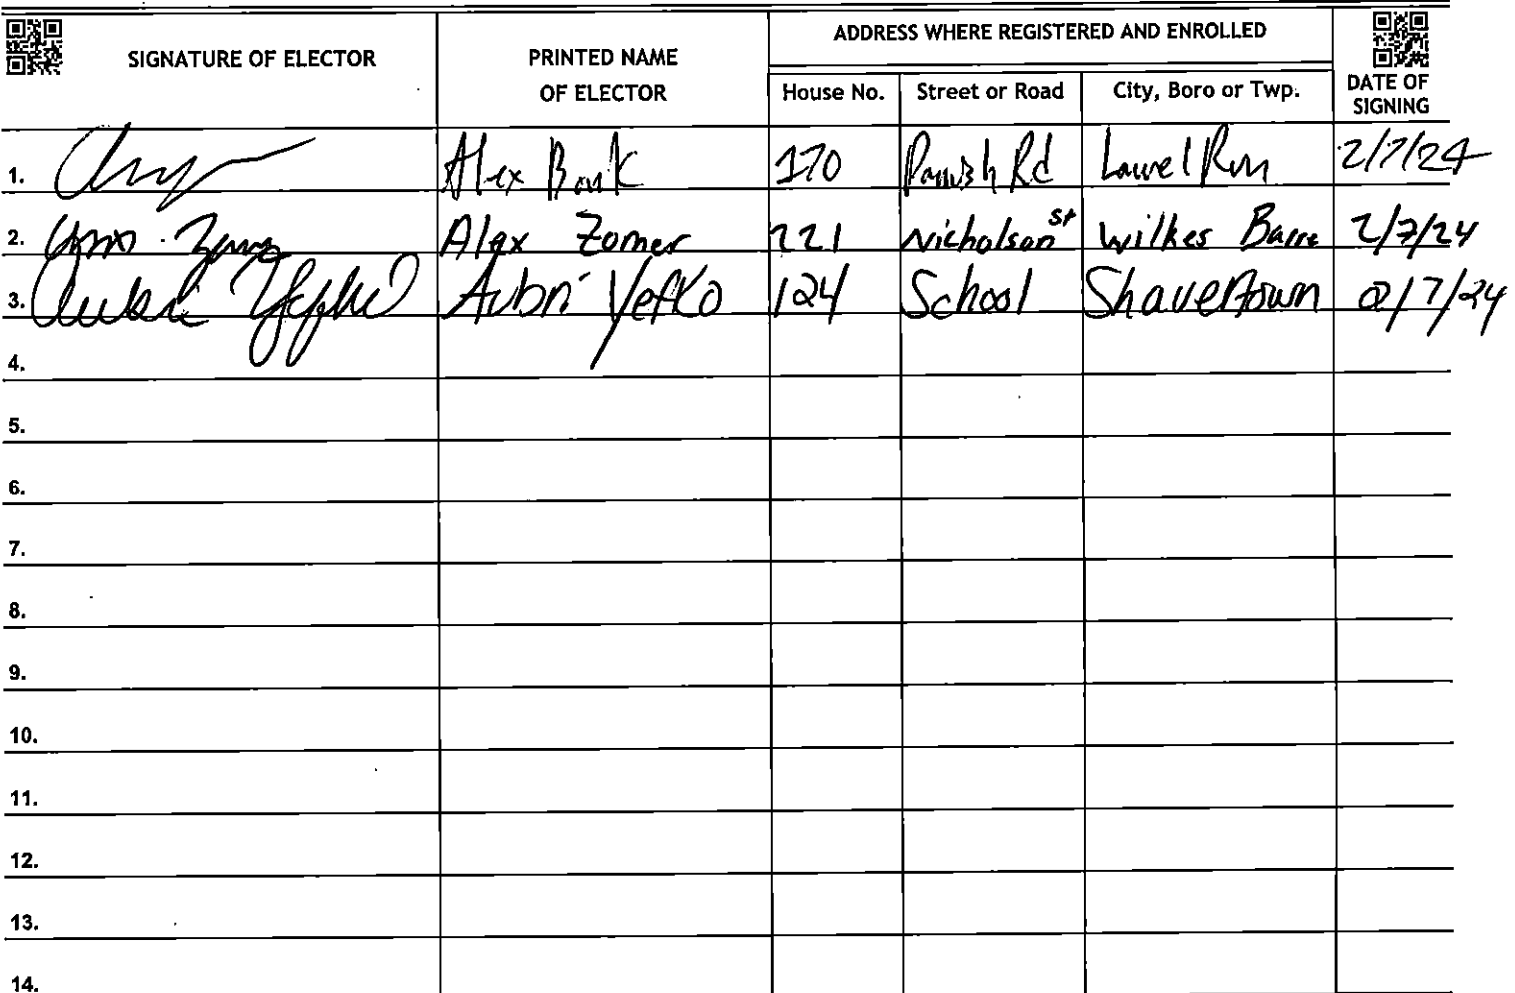 SIGNATURE OF ELECTOR
PRINTED NAME
OF ELECTOR
ADDRESS WHERE REGISTERED AND ENROLLED
House No. Street or Road City, Boro or Twp.
DATE OF
SIGNING
1. Alex Bonk 170 Parrish Rd Laurel Run 2/7/24
2. Alex Zomer 221 Nicholson St Wilkes Barre 2/7/24
3. Aubri Yefko 124 School Shavertown 2/7/24
4.
5.
6.
7.
8.
9.
10.
11.
12.
13.
14.